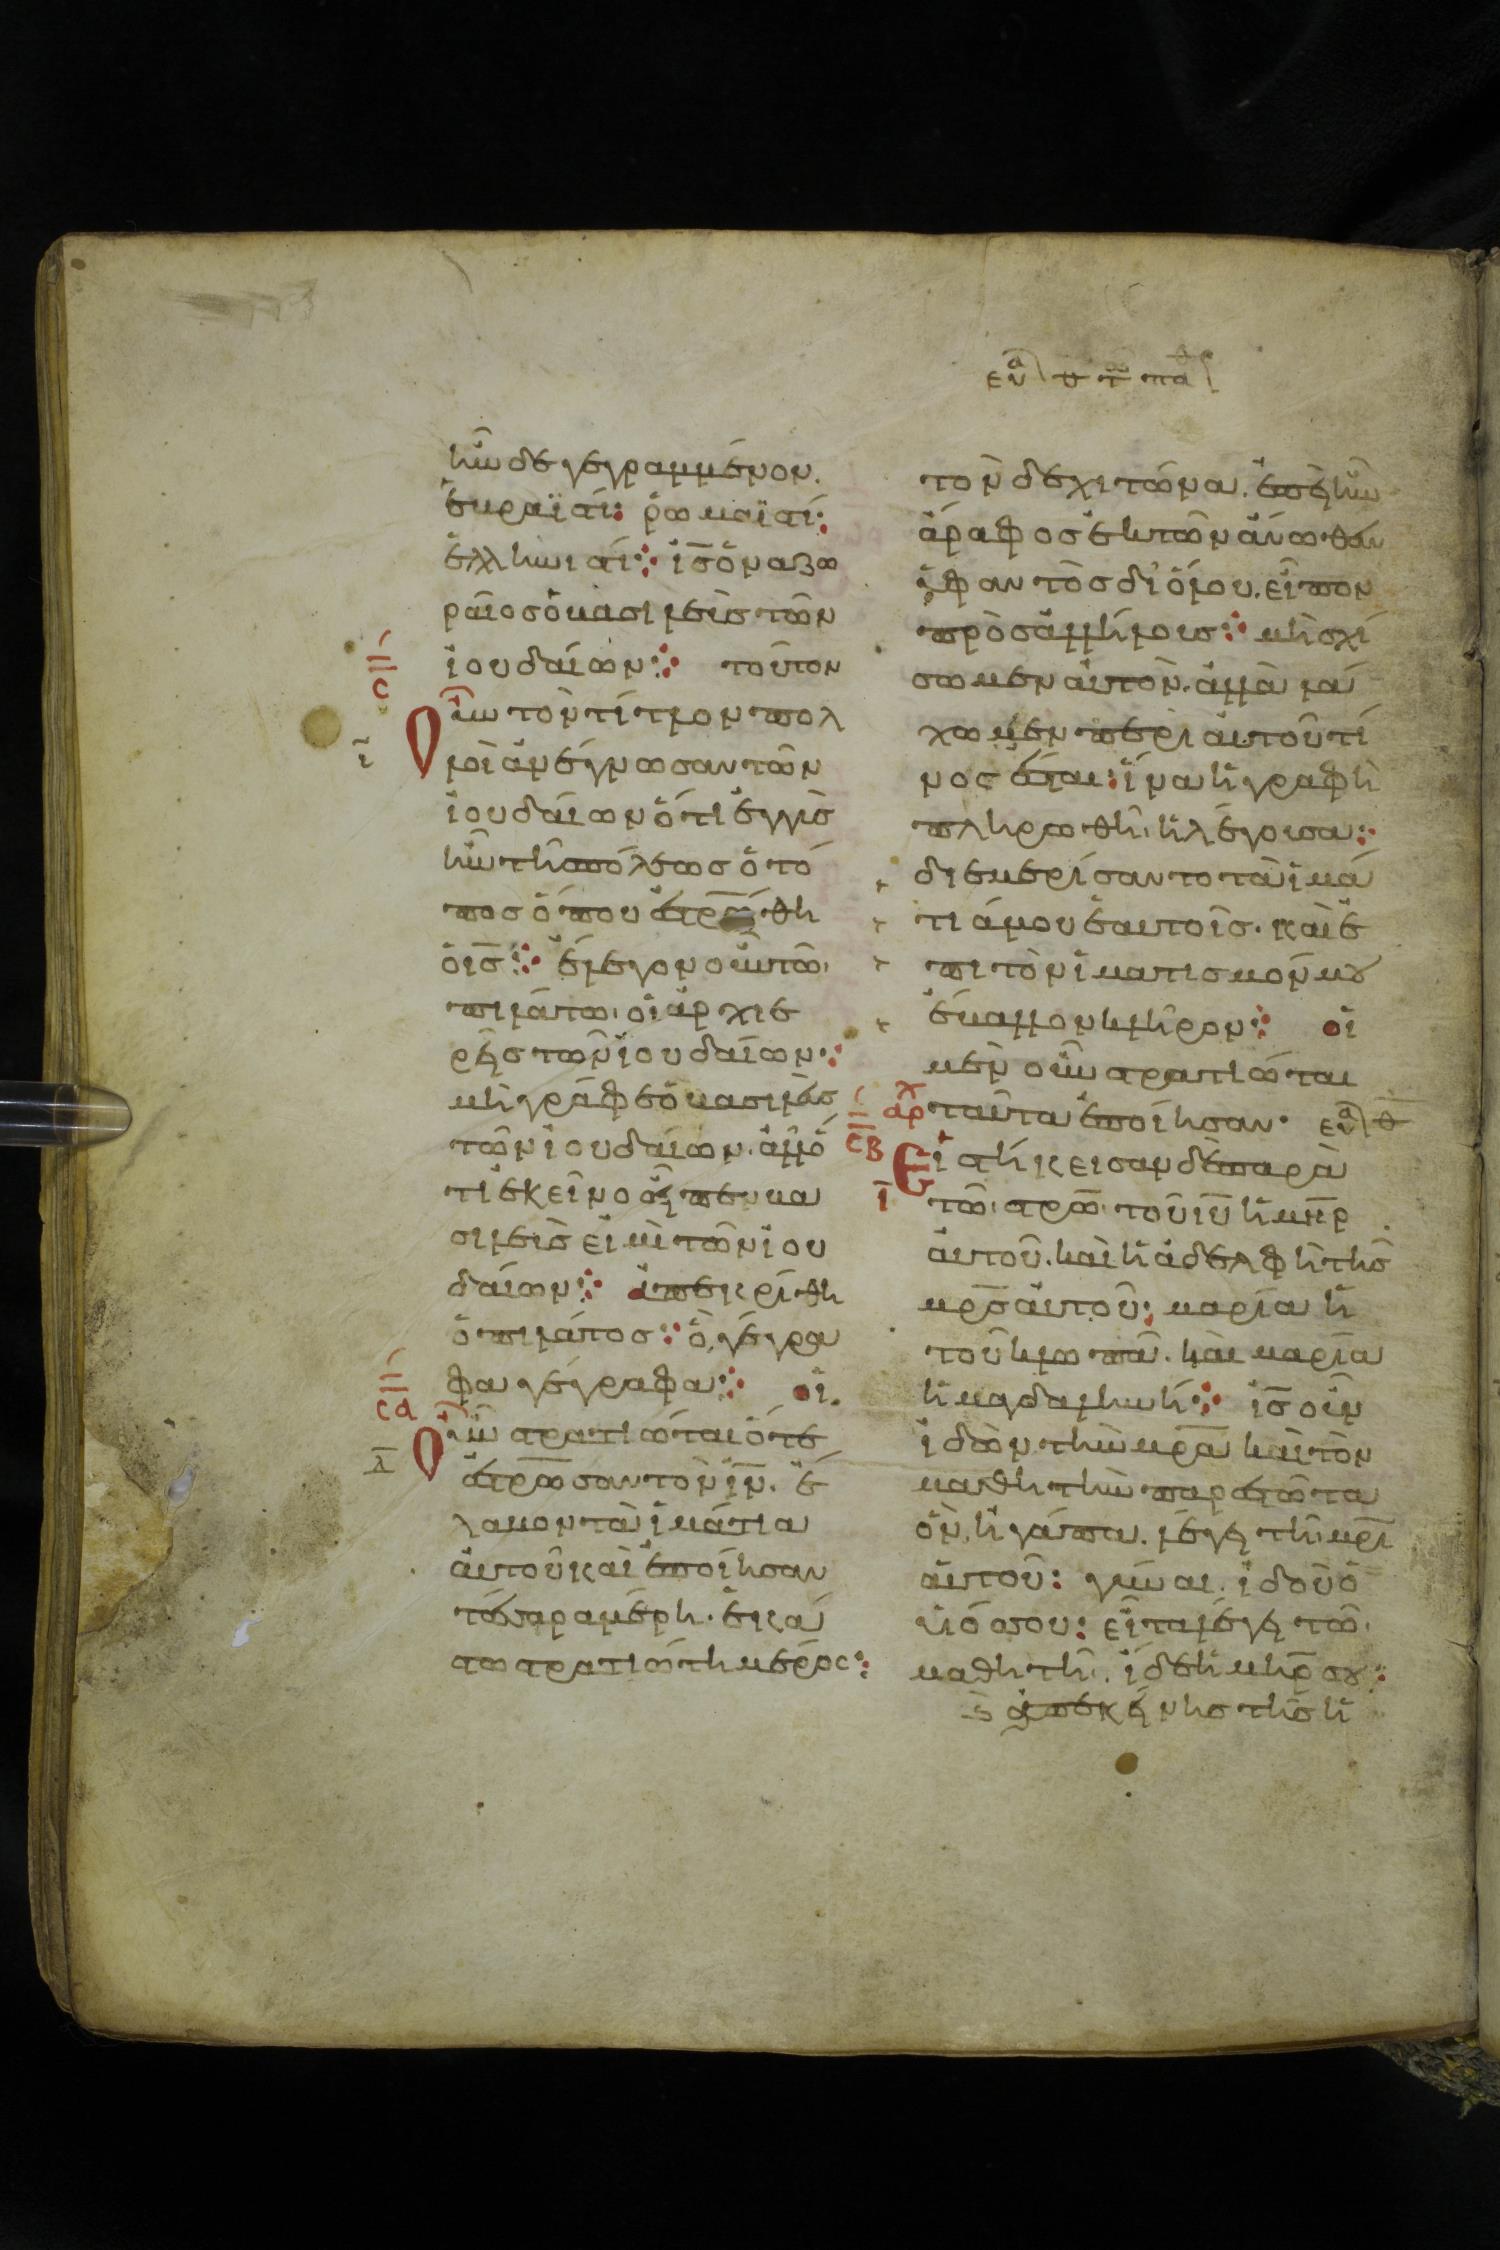 ἦν δὲ γεγραμμένον.
ἑβραϊστί: ῥωμαϊστί:
ἑλληνιστί: ι̅ς̅ ὁ ναζω
ραῖος ὁ βασιλεὺς τῶν
ἰουδαίων: τοῦτον
C
οὖν τὸν τίτλον πολ
ι̅
λοὶ ἀνέγνωσαν τῶν
ἰουδαίων ὅτι ἐγγὺς
ἦν τῆς πόλεως ὁ τό
πος ὅπου ἐστρώθη
ὁ ι̅ς̅: ἔλεγον οὖν τῶ
πιλάτω οἱ ἀρχιε
ρεῖς τῶν ἰουδαίων:
μὴ γράφε ὁ βασιλεὺς
τῶν ἰουδαίων. ἀλλ' ὅ
τι ἐκεῖνος εἶπεν βα
σιλεὺς εἰμὶ τῶν ἰου
δαίων: ἀπεκρίθη
ὁ πιλάτος: ὃ γέγρα
φα γέγραφα: οἱ
Cα
οὖν στρατιῶται ὅτε
ἐστρ̅ω̅σαν τὸν ι̅ν̅. ἔ
λαβον τὰ ἱμάτια
αὐτοῦ καὶ ἐποίησαν
τέσσαρα μέρη. ἑκά
στω στρατιώτη μέρος:
τὸν δὲ χιτῶνα. ἐπεὶ ἦν
ἄραφος ἐκ τῶν ἄνωθεν
ὑφαντὸς δι' ὅλου. εἶπον
πρὸς ἀλλήλους: μὴ σχί
σωμεν αὐτὸν. ἀλλὰ λά
χωμεν περὶ αὐτοῦ τί
νος ἔσται: ἵνα ἡ γραφὴ
πληρωθῆ ἡ λέγουσα:
διεμερίσαντο τὰ ἱμά
τιά μου ἑαυτοῖς. καὶ ἐ
πὶ τὸν ἱματισμόν μου
ἔβαλλον κλῆρον: οἱ
μὲν οὖν στρατιῶται
αρχ ταῦτα ἐποίησαν.
CΒ
Εἱστήκεισαν δὲ παρὰ
ι̅
τῶ στρ̅ω̅ τοῦ ι̅υ̅ ἡ μ̅η̅ρ̅
αὐτοῦ. καὶ ἡ ἀδελφὴ τῆς
μ̅ρ̅ς̅ αὐτοῦ: μαρία ἡ
τοῦ κλωπᾶ. καὶ μαρία
ἡ μαγδαληνή: ι̅ς̅ οὖν
ἰδὼν τὴν μ̅ρ̅α̅ καὶ τὸν
μαθητὴν παρεστῶτα
ὃν ἠγάπα. λέγει τῆ μ̅ρ̅ι̅
αὐτοῦ: γύναι. ἰδοὺ ὁ
υἱός σου: εἶτα λέγει τῶ
μαθητῆ. ἴδε ἡ μ̅η̅ρ̅ σου:
καὶ ἀπ' ἐκείνης τῆς ἡ